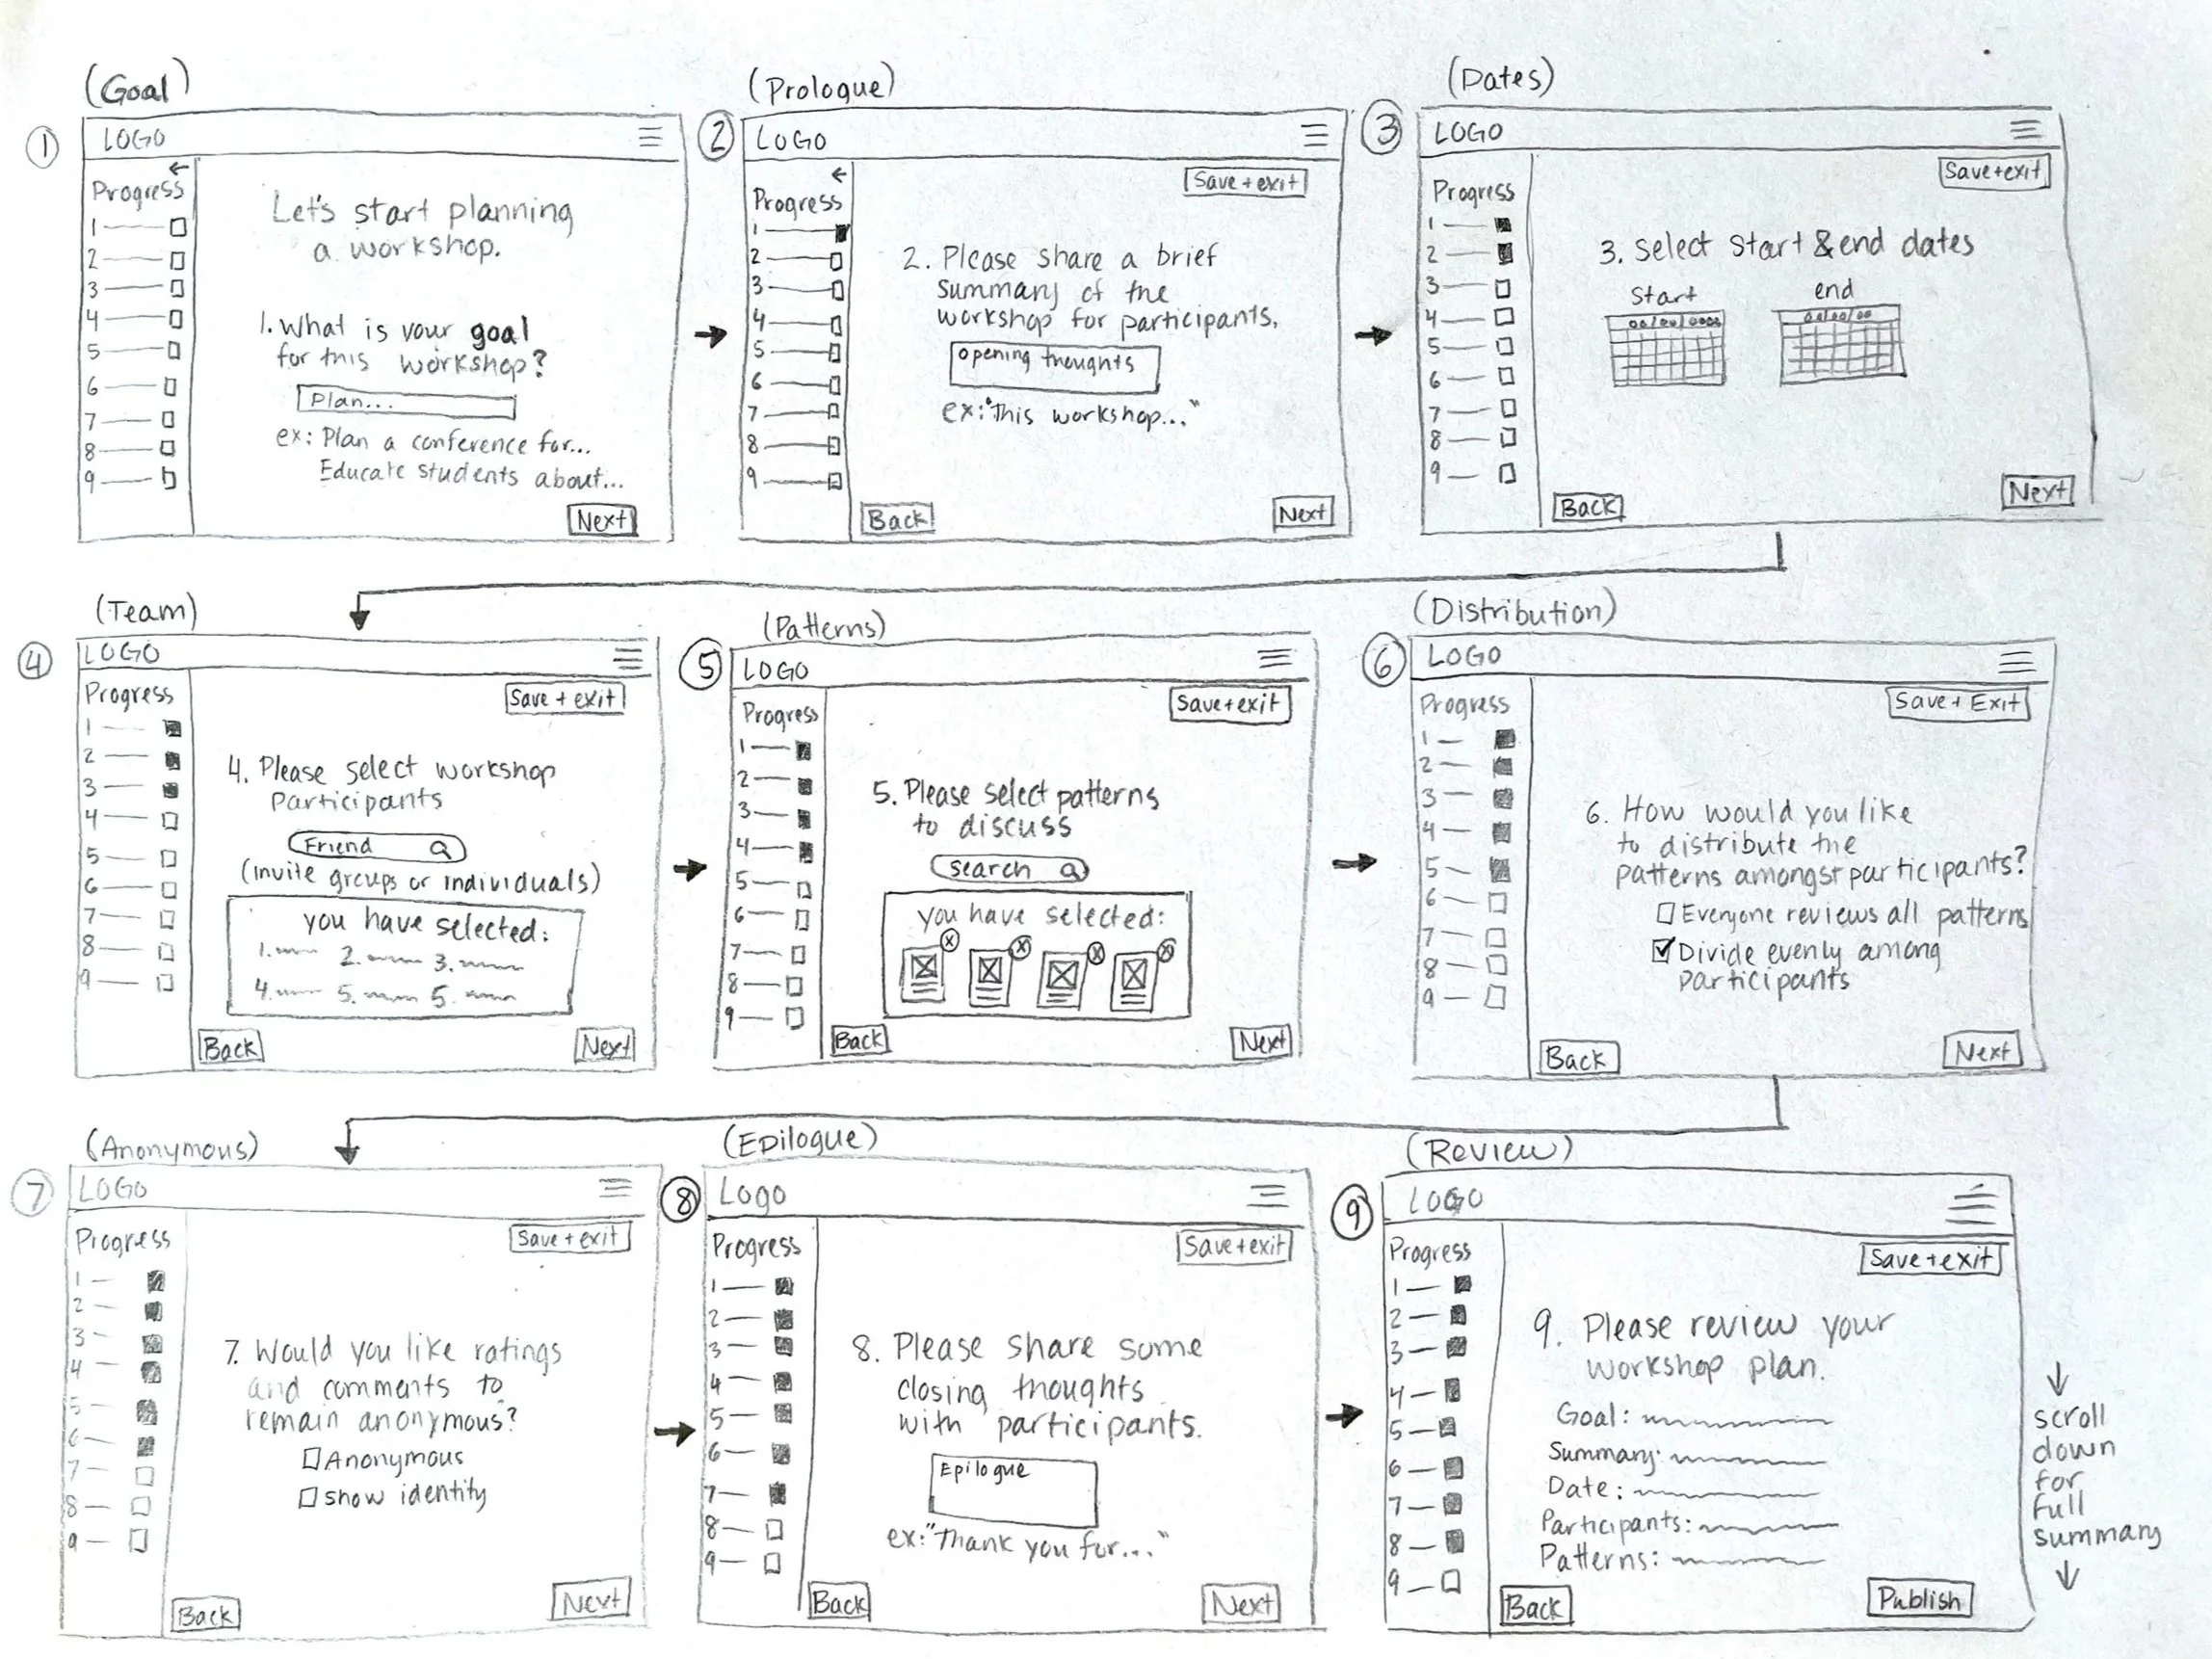 (Goal)
1
LOGO
←
Progress
1
2
3
4
5
6
7
8
9
Let's start planning
a workshop.
1. What is your goal
for this workshop?
Plan...
ex: Plan a conference for...
Educate students about...
Next
(Prologue)
2
LOGO
←
Save + exit
Progress
1
2
3
4
5
6
7
8
9
2. Please share a brief
summary of the
workshop for participants.
opening thoughts
ex: "this workshop..."
Back
Next
(Dates)
3
LOGO
Save+exit
Progress
1
2
3
4
5
6
7
8
9
3. Select Start & end dates
Start
end
00/00/0000
00/00/00
Back
Next
(Team)
4
LOGO
Progress
Save + exit
1
2
3
4
5
6
7
8
9
4. Please select workshop
Participants
Friend
(invite groups or individuals)
you have selected:
1. 2. 3.
4. 5. 5.
Back
Next
(Patterns)
5
LOGO
Progress
Save+exit
1
2
3
4
5
6
7
8
9
5. Please select patterns
to discuss
Search
you have selected:
X X X X
Back
Next
(Distribution)
6
LOGO
Progress
Save + Exit
1
2
3
4
5
6
7
8
9
6. How would you like
to distribute the
patterns amongst participants?
Everyone reviews all patterns
Divide evenly among
participants
Back
Next
(Anonymous)
7
LOGO
Progress
Save + exit
1
2
3
4
5
6
7
8
9
7. Would you like ratings
and comments to
remain anonymous?
Anonymous
show identity
Back
Next
(Epilogue)
8
Logo
Progress
Save+exit
1
2
3
4
5
6
7
8
9
8. Please share some
closing thoughts
with participants.
Epilogue
ex: "Thank you for..."
Back
Next
(Review)
9
LOGO
Progress
Save + exit
1
2
3
4
5
6
7
8
9
9. Please review your
workshop plan.
Goal:
Summary:
Date:
Participants:
Patterns:
Back
Publish
↓
scroll
down
for
full
summary
↓